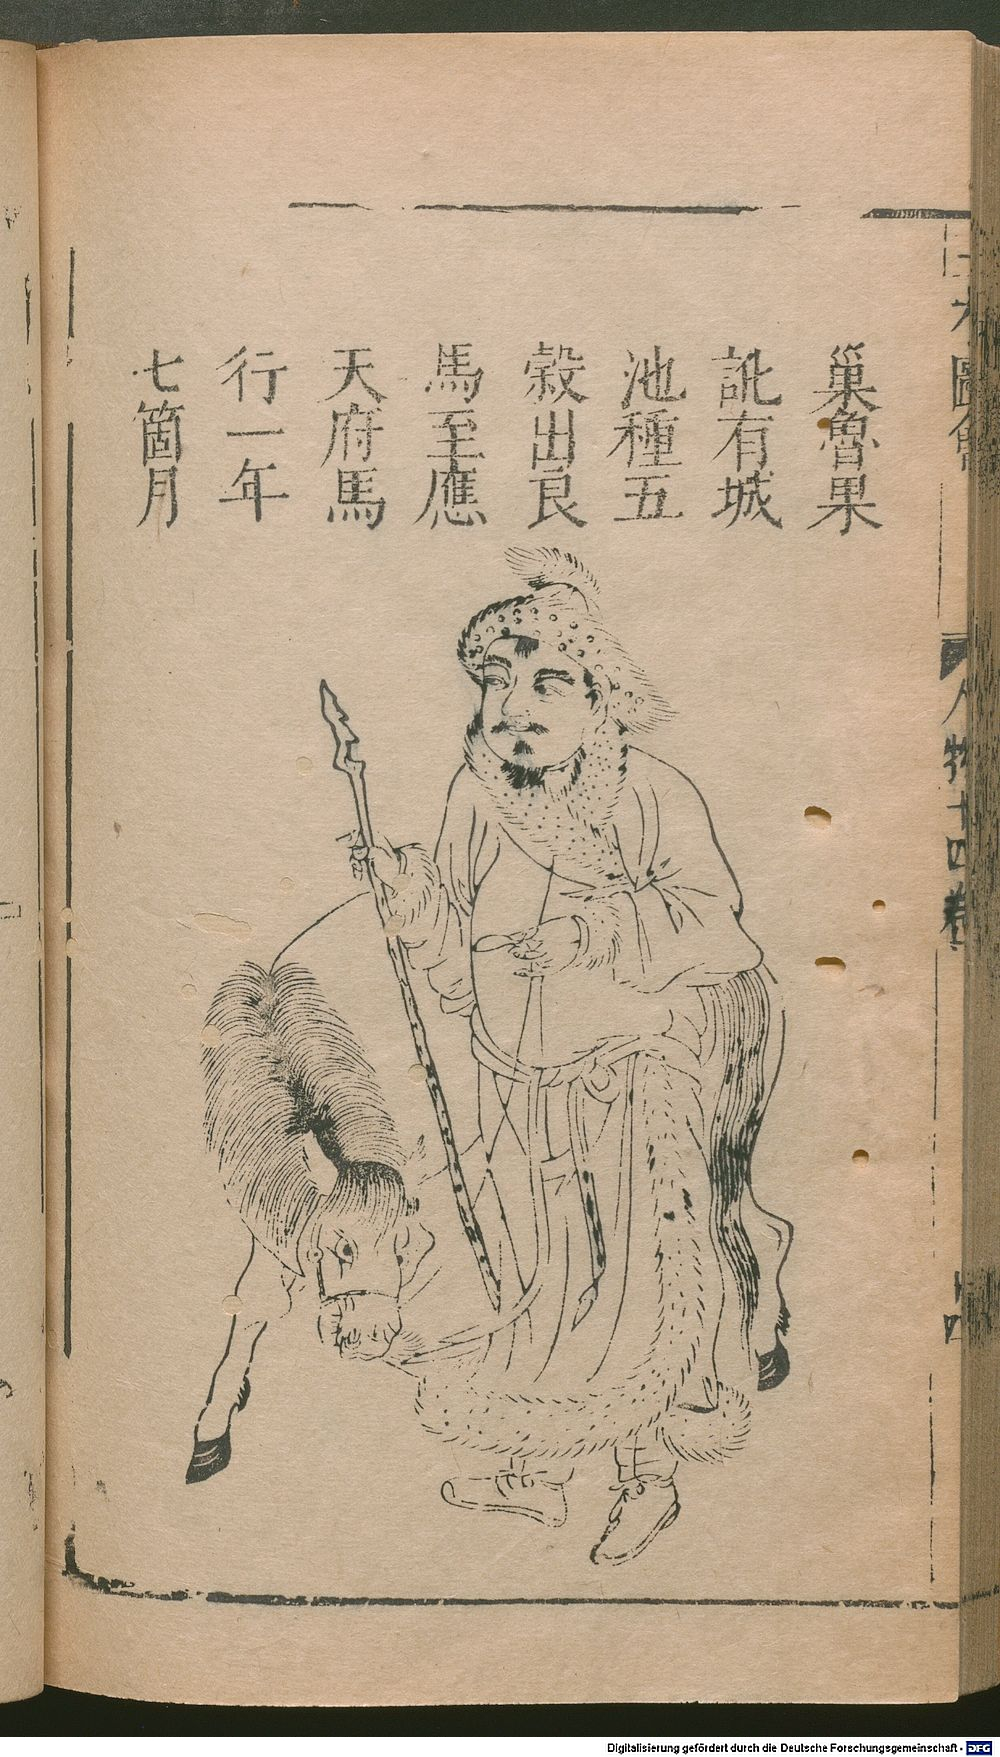 巢魯果
訛有城
池種五
穀出良
馬至應
天府馬
行一年
七箇月
圖會
人物十四卷
十四
Digitalisierung gefördert durch die Deutsche Forschungsgemeinschaft - DFG